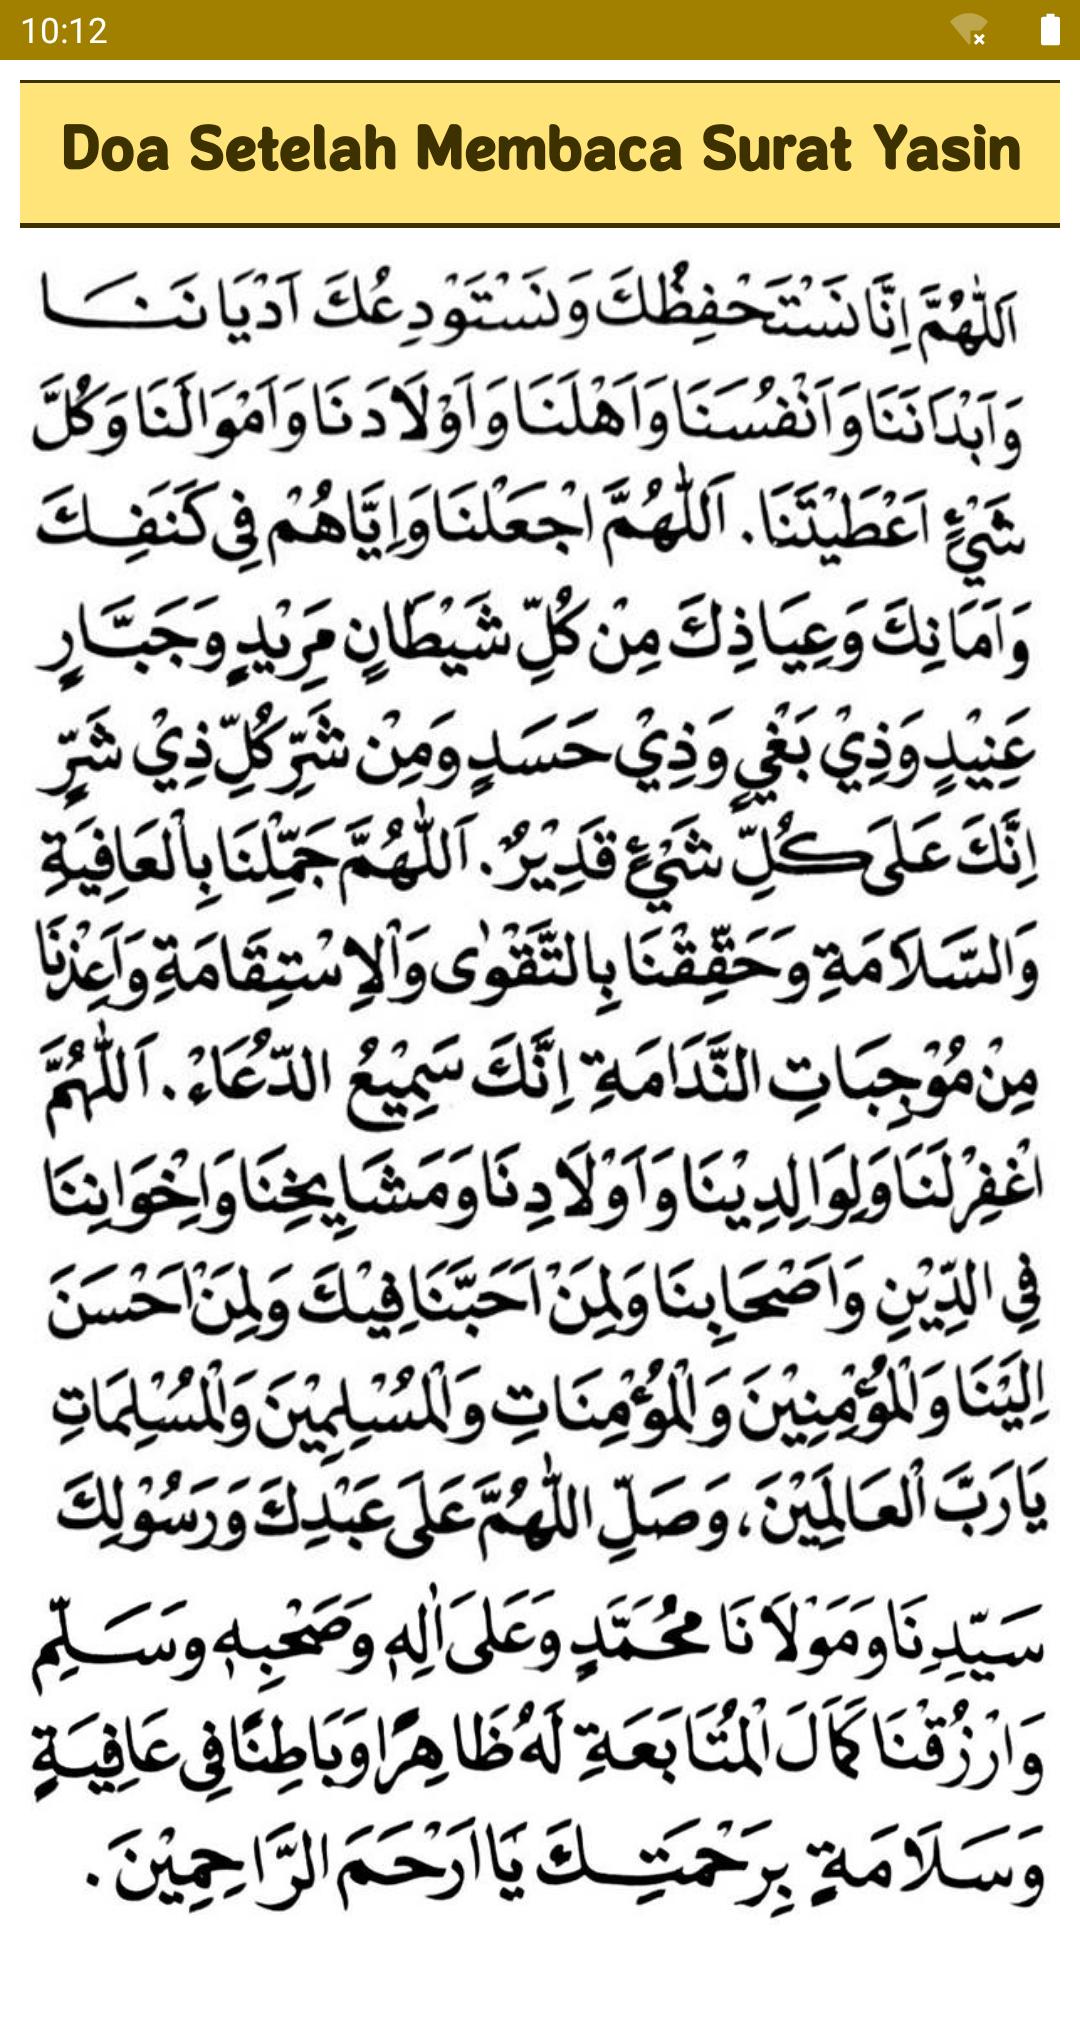 10:12
Doa Setelah Membaca Surat Yasin
اَللّٰهُمَّ اِنَّا نَسْتَحْفِظُكَ وَنَسْتَوْدِعُكَ اَدْيَانَنَا
وَاَبْدَانَنَا وَاَنْفُسَنَا وَاَهْلَنَا وَاَوْلَادَنَا وَاَمْوَالَنَا وَكُلَّ
شَيْءٍ اَعْطَيْتَنَا. اَللّٰهُمَّ اجْعَلْنَا وَاِيَّاهُمْ فِي كَنَفِكَ
وَاَمَانِكَ وَعِيَاذِكَ مِنْ كُلِّ شَيْطَانٍ مَرِيْدٍ وَجَبَّارٍ
عَنِيْدٍ وَذِيْ بَغْيٍ وَذِيْ حَسَدٍ وَمِنْ شَرِّ كُلِّ ذِيْ شَرٍّ
اِنَّكَ عَلَى كُلِّ شَيْءٍ قَدِيْرٌ. اَللّٰهُمَّ جَمِّلْنَا بِالْعَافِيَةِ
وَالسَّلَامَةِ وَحَقِّقْنَا بِالتَّقْوٰى وَالْاِسْتِقَامَةِ وَاَعِذْنَا
مِنْ مُوْجِبَاتِ النَّدَامَةِ اِنَّكَ سَمِيْعُ الدُّعَاءْ. اَللّٰهُمَّ
اغْفِرْ لَنَا وَلِوَالِدِيْنَا وَاَوْلَادِنَا وَمَشَايِخِنَا وَاِخْوَانِنَا
فِي الدِّيْنِ وَاَصْحَابِنَا وَلِمَنْ اَحَبَّنَا فِيْكَ وَلِمَنْ اَحْسَنَ
اِلَيْنَا وَالْمُؤْمِنِيْنَ وَالْمُؤْمِنَاتِ وَالْمُسْلِمِيْنَ وَالْمُسْلِمَاتِ
يَارَبَّ الْعَالَمِيْنَ، وَصَلِّ اللّٰهُمَّ عَلَى عَبْدِكَ وَرَسُوْلِكَ
سَيِّدِنَا وَمَوْلَانَا مُحَمَّدٍ وَعَلَى اٰلِهٖ وَصَحْبِهٖ وَسَلِّمْ
وَارْزُقْنَا كَمَالَ الْمُتَابَعَةِ لَهُ ظَاهِرًا وَبَاطِنًا فِي عَافِيَةٍ
وَسَلَامَةٍ بِرَحْمَتِكَ يَا اَرْحَمَ الرَّاحِمِيْنَ.